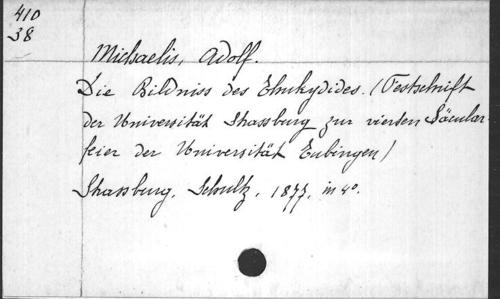 410
38
Michaelis, Adolf.
Die Bildniss des Thukydides. (Festschrift
der Universität Strassburg zur vierten Säcular-
feier der Universität Tübingen)
Strassburg, Schultz, 1877, in 4°.